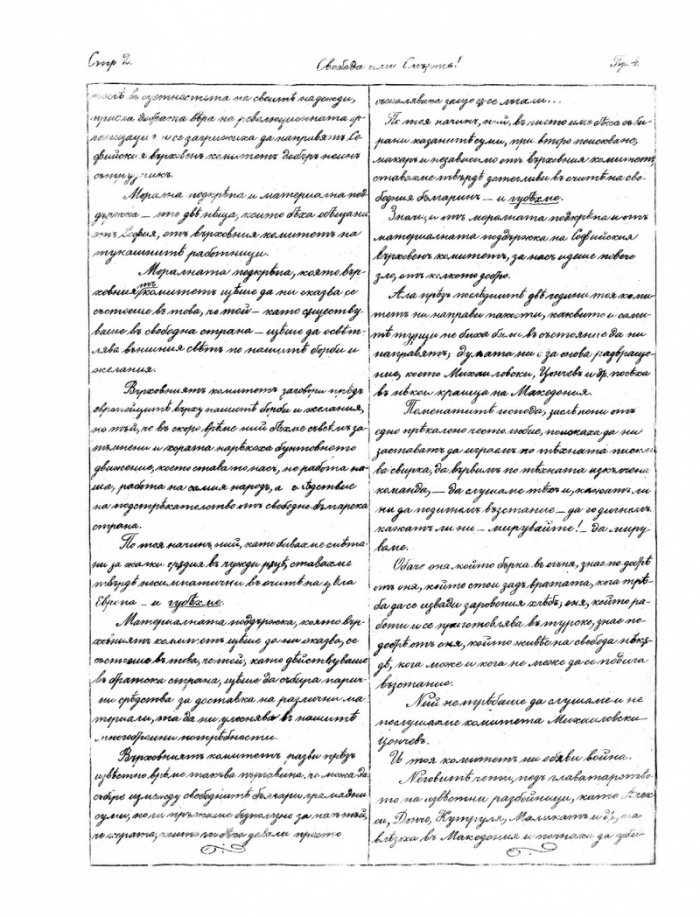 Стр 2.
Свобода или Смърть!
Бр. 4.
въ сѫщностьта на своитѣ надежди,
вѣра на революционната ор-
и се загрижиха да направятъ Со-
фийския върховенъ комитетъ добъръ неинъ
сътрудникъ.
Морална подкрѣпа и материална под-
дръжка — ето двѣ нѣща, които бѣха обѣщани
отъ София, отъ върховния комитетъ на
тукашнитѣ работници.
Моралната подкрѣпа, която вър-
ховниятъ комитетъ щѣше да ни оказва се
състоеше въ това, че той — като сѫществу-
ваше въ свободна страна — щѣше да освѣт-
лява външния свѣтъ по нашитѣ борби и
желания.
Върховниятъ комитетъ заговори прѣдъ
европейцитѣ върху нашитѣ борби и желания,
но тъй, че въ скоро врѣме ний бѣхме съвсѣмъ за-
тъмнени и хората нарѣкоха бунтовното
движение, което става по насъ, не работа на-
ша, работа на самия народъ, а слѣдствие
на подстрѣкателство отъ свободно българска
страна.
По тоя начинъ, ний, като бивахме смѣта-
ни за жалки орѫдия въ чужди рѫцѣ, ставахме
твърдѣ несимпатични въ очитѣ на цѣла
Европа — и губѣхме.
Материалната поддръжка, която вър-
ховниятъ комитетъ щѣше да ни оказва, се
състоеше въ това, че той, като дѣйствуваше
въ братска страна, щѣше да събира парич-
ни срѣдства за доставка на различни ма-
териали, та да ни улеснява въ нашитѣ
многобройни потрѣбности.
Върховниятъ комитетъ разви прѣзъ
извѣстно врѣме такъва, че можа да
събере измежду свободнитѣ българи грамадни
суми, но ги пръжкаше безполезно за насъ тъй,
че хората, които ги бѣха давали просто
съжалявиха защо ги се лъгали...
По тоя начинъ, ний, въ чисто име бѣха съби-
рани казанитѣ суми, при второ поискване,
макаръ и независимо отъ върховния комитетъ,
ставахме твърдѣ втѣгливи въ очитѣ на сво-
бодния българинъ — и губѣхме.
Значи отъ моралната подкрѣпа и отъ
материалната поддръжка на Софийския
върховенъ комитетъ, за насъ идеше повече
зло, отъ колкото добро.
Ала прѣзъ послѣднитѣ двѣ години тоя коми-
тетъ ни направи пакости, каквито и сами-
тѣ турци не биха били въ състояние да ни
направятъ; думата ни е за онова развраще-
ние, което Михаиловски, Цончевъ и др. посѣха
въ нѣкои краища на Македония.
Поменатитѣ господа, заслѣпени отъ
едно прѣкалено честолюбие, поискаха да ни
заставятъ да играемъ по тѣхната пискли-
ва свирка, да вървимъ по тѣхната изкълчена
команда, — да слушаме тѣхъ и, кажатъ ли
ни да подигнемъ възстание — да подигнемъ,
кажатъ ли ни — мирувайте! — да миру-
ваме.
Обаче оня, който бърка въ огъня, знае по добрѣ
отъ оня, който стои задъ вратата, кога трѣб-
ва да се извади заровения хлѣбъ; оня, който ра-
боти и се приготовлява въ турско, знае по-
добрѣ отъ оня, който живѣе на свобода нѣкѫ-
дѣ, кога може и кога не може да се подига
възстание.
Ний не трѣбаше да слушаме и не
послушаме комитета Михаиловски-
Цончевъ.
И тоя комитетъ ни обяви война.
Неговитѣ чети, подъ главатарство-
то на извѣстни разбойници, като Алек-
си, Дончо, Кутруля, Маликатъ и др., на-
влѣзоха въ Македония и почнаха да уби-